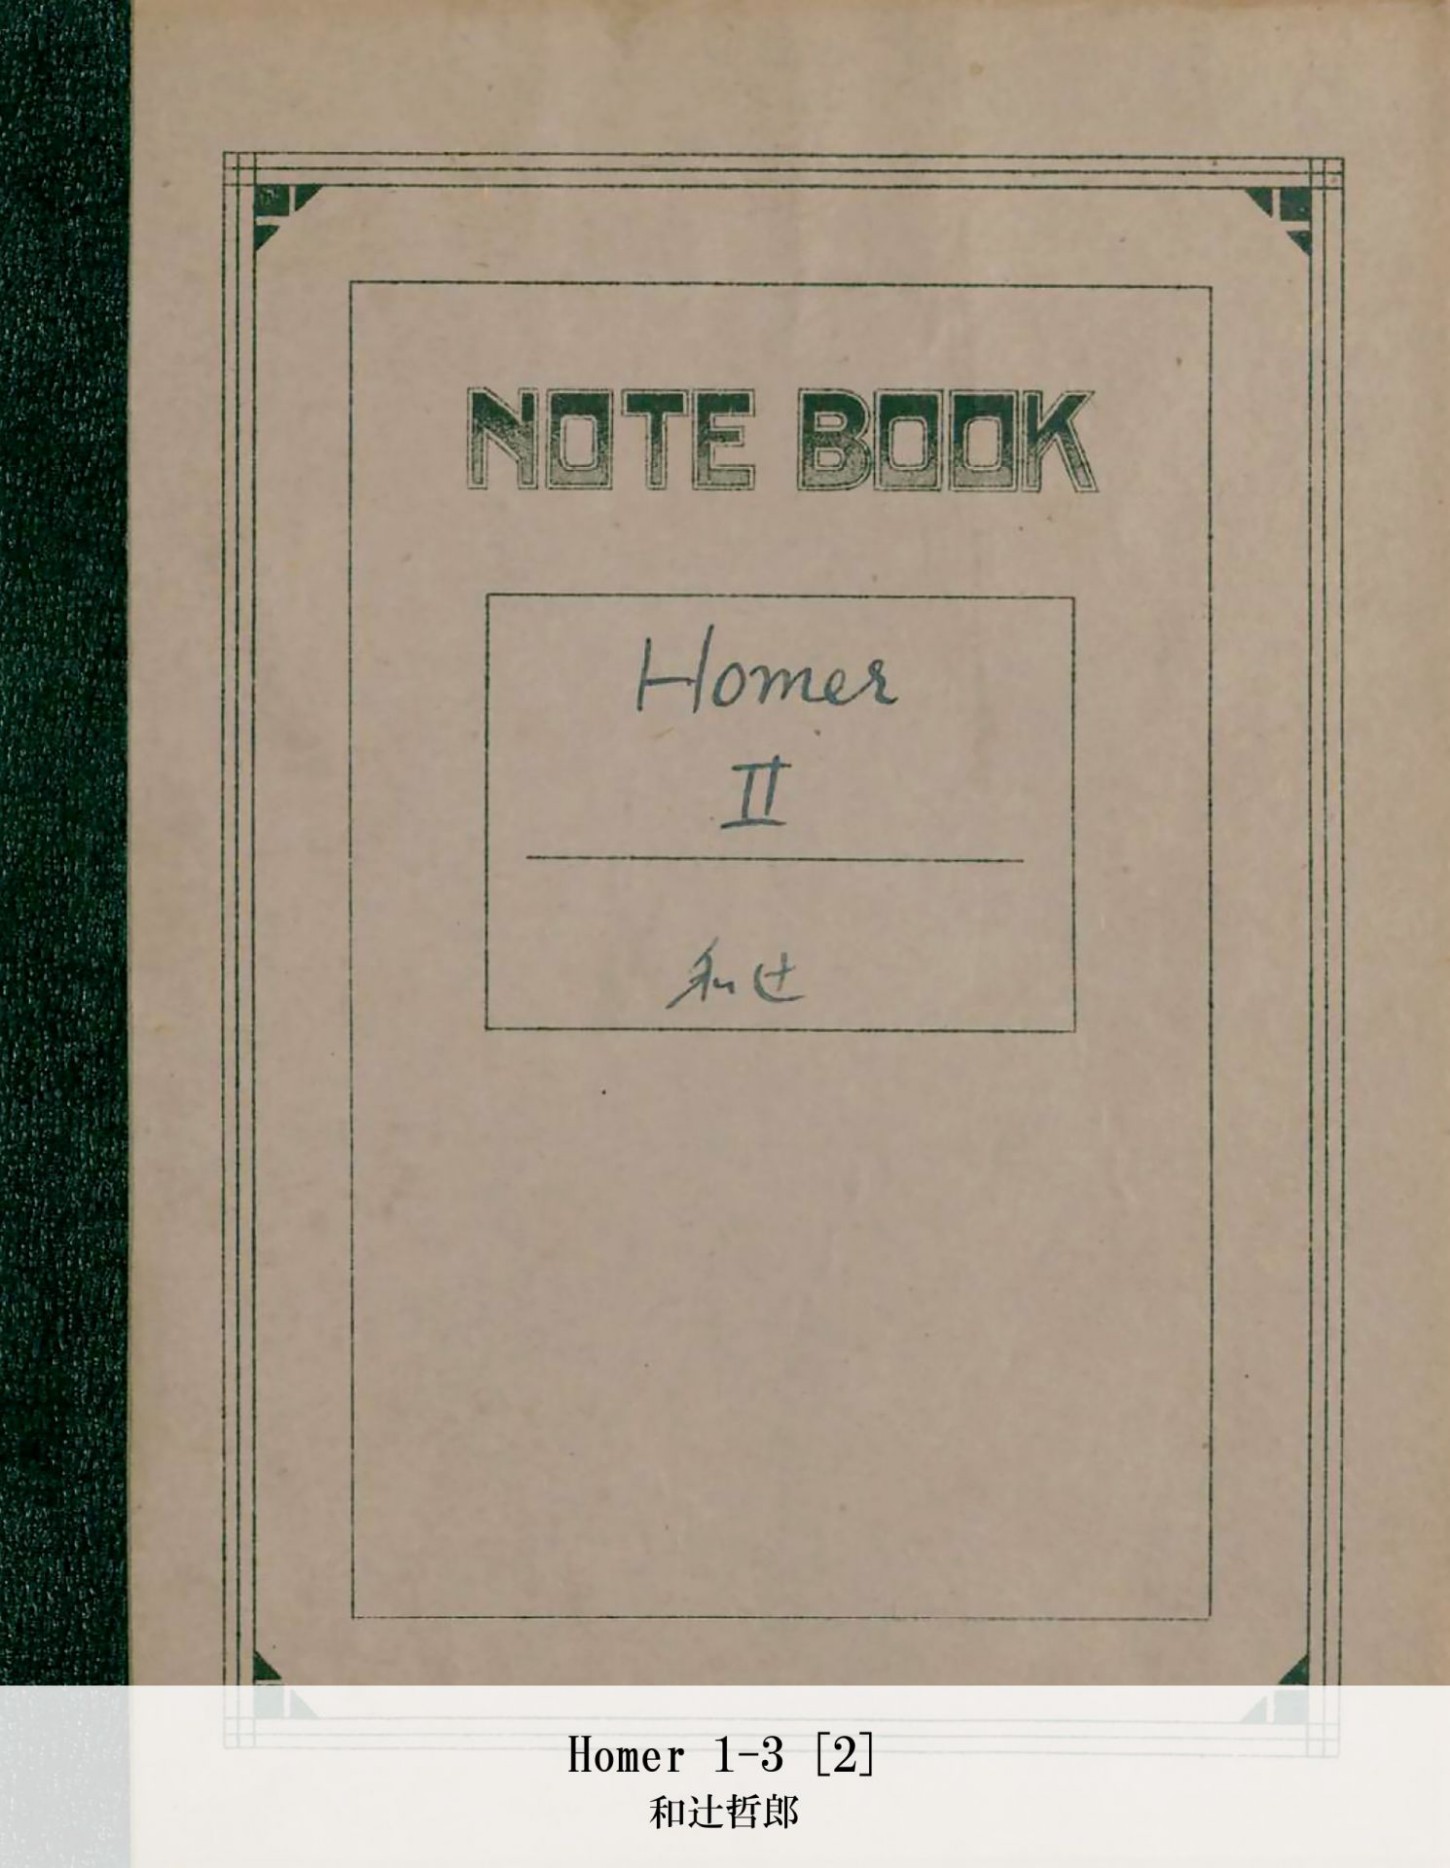 NOTE BOOK
Homer
II
和辻
Homer 1-3 [2]
和辻哲郎